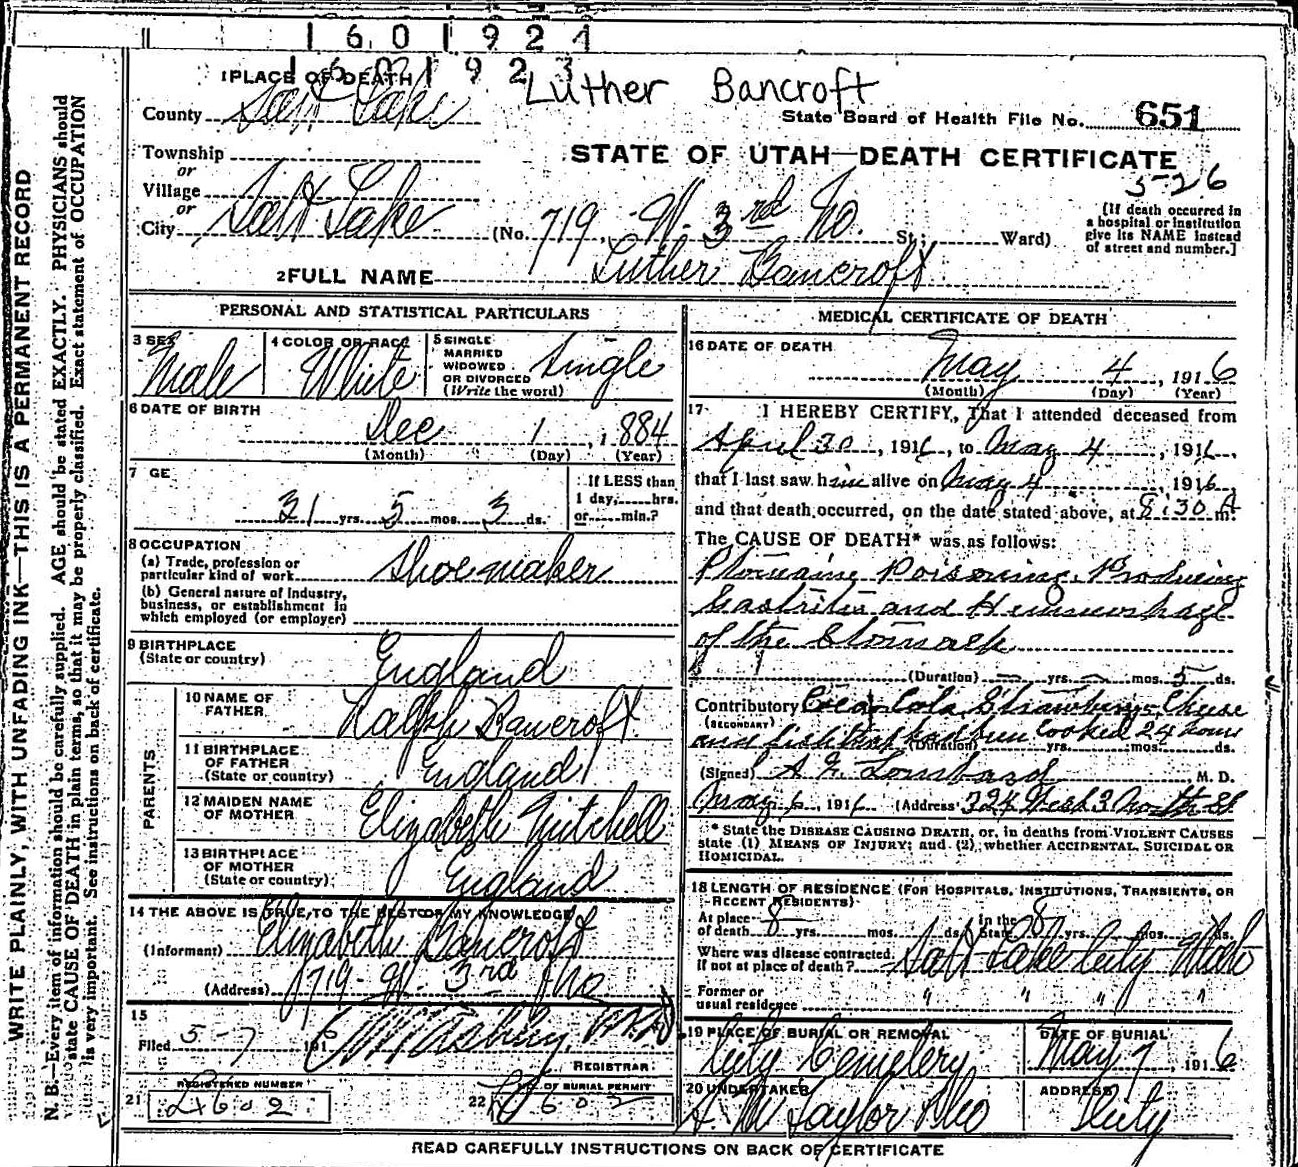 1601924
1601923
Luther Bancroft
1 PLACE OF DEATH
County Salt Lake
State Board of Health File No. 651
Township
or
Village
or
City Salt Lake
STATE OF UTAH—DEATH CERTIFICATE
5-26
(No. 719 W. 3rd No. St.; Ward)
[If death occurred in
a hospital or institution
give its NAME instead
of street and number.]
2 FULL NAME Luther Bancroft
PERSONAL AND STATISTICAL PARTICULARS
3 SEX
Male
4 COLOR OR RACE
White
5 SINGLE
MARRIED
WIDOWED
OR DIVORCED
(Write the word)
Single
6 DATE OF BIRTH
Dec 1, 1884
(Month) (Day) (Year)
7 GE
31 yrs. 5 mos. 3 ds.
If LESS than
1 day, hrs.
or min.?
8 OCCUPATION
(a) Trade, profession or
particular kind of work Shoemaker
(b) General nature of industry,
business, or establishment in
which employed (or employer)
9 BIRTHPLACE
(State or country)
England
PARENTS
10 NAME OF
FATHER
Ralph Bancroft
11 BIRTHPLACE
OF FATHER
(State or country)
England
12 MAIDEN NAME
OF MOTHER
Elizabeth Mitchell
13 BIRTHPLACE
OF MOTHER
(State or country)
England
14 THE ABOVE IS TRUE, TO THE BEST OF MY KNOWLEDGE
(Informant) Elizabeth Bancroft
(Address) 719 - W. 3rd No
15
Filed 5-7 1916
REGISTRAR
REGISTERED NUMBER
21
NO. OF BURIAL PERMIT
22
MEDICAL CERTIFICATE OF DEATH
16 DATE OF DEATH
May 4, 1916
(Month) (Day) (Year)
17 I HEREBY CERTIFY, That I attended deceased from
April 30, 1916, to May 4, 1916,
that I last saw him alive on May 4, 1916,
and that death occurred, on the date stated above, at 8:30 A m.
The CAUSE OF DEATH* was as follows:
Ptomaine Poisoning, Producing
Gastritis and Hemmorhage
of the Stomach
(Duration) yrs. mos. 5 ds.
Contributory Coca Cola, Strawberrys Cheese
(SECONDARY)
and fish that had been cooked 24 hours
(Duration) yrs. mos. ds.
(Signed) Lombard, M. D.
May 6, 1916 (Address) 324 West 3 North St
* State the DISEASE CAUSING DEATH, or, in deaths from VIOLENT CAUSES
state (1) MEANS OF INJURY; and (2) whether ACCIDENTAL, SUICIDAL OR
HOMICIDAL.
18 LENGTH OF RESIDENCE (FOR HOSPITALS, INSTITUTIONS, TRANSIENTS, OR
RECENT RESIDENTS)
At place
of death 8 yrs. mos. ds.
In the
State 8 yrs. mos. ds.
Where was disease contracted,
if not at place of death? Salt Lake City Utah
Former or
usual residence " " " "
19 PLACE OF BURIAL OR REMOVAL
City Cemetery
DATE OF BURIAL
May 7 1916
20 UNDERTAKER
Taylor
ADDRESS
City
READ CAREFULLY INSTRUCTIONS ON BACK OF CERTIFICATE
WRITE PLAINLY, WITH UNFADING INK—THIS IS A PERMANENT RECORD
N. B.—Every item of information should be carefully supplied. AGE should be stated EXACTLY. PHYSICIANS should
state CAUSE OF DEATH in plain terms, so that it may be properly classified. Exact statement of OCCUPATION
is very important. See instructions on back of certificate.